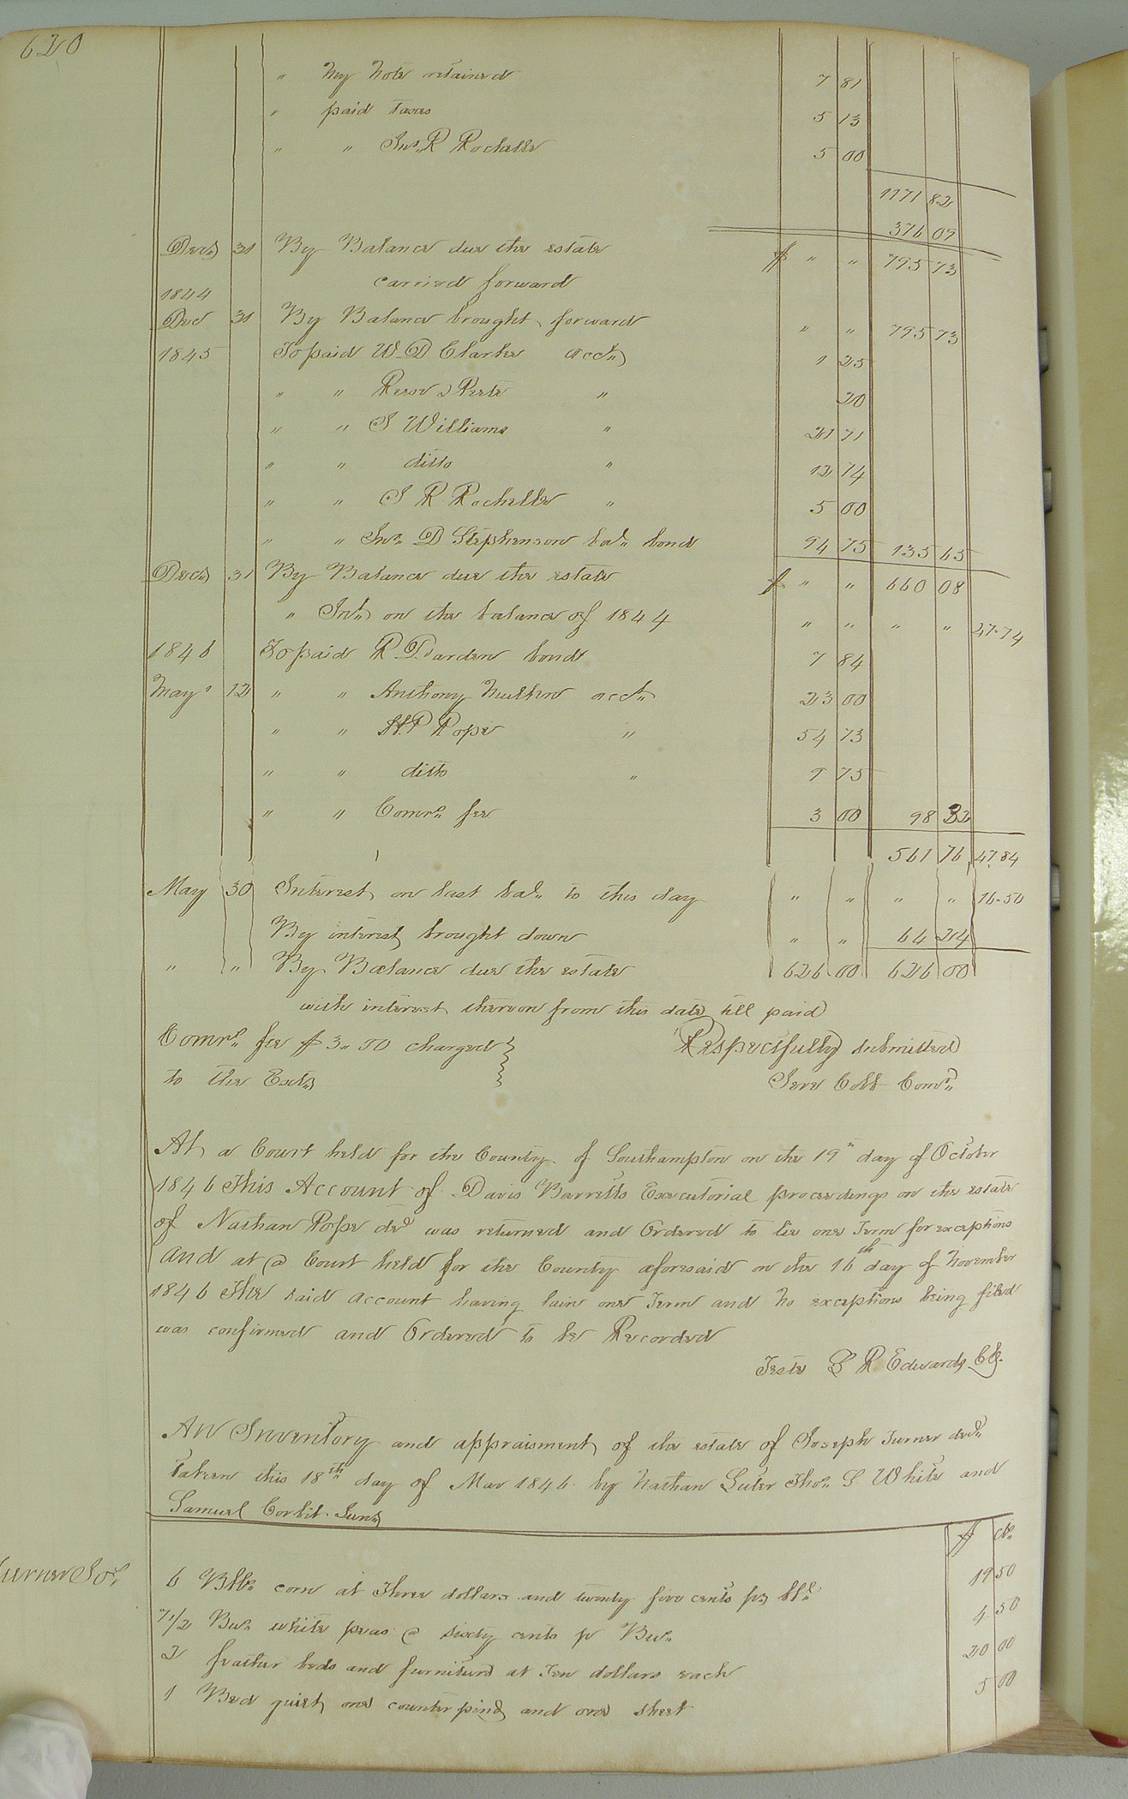 620
" My Note retained 7 81
" paid taxes 5 13
" " Jno. R Rochelle 5 00
1171 82
376 09
Decr 31 By Balance due the estate $ " " 795 73
carried forward
1844
Dec 31 By Balance brought forward " " 795 73
1845 To paid W. D Clarke acct 1 25
" " " 20
" " S Williams " 21 71
" " ditto " 12 14
" " J R Rochelle " 5 00
" " Jno. D Stephenson bal. bond 94 75 135 65
Decr 31 By Balance due the estate $ " " 660 08
" Int. on the balance of 1844 " " " " 47.74
1846 To paid R. Darden bond 7 84
May 12 " " Anthony acct. 23 00
" " H. P Pope " 54 73
" " ditto " 9 75
" " Comr. fee 3 00 98 32
561 76 47.84
May 30 Interest on last bal. to this day " " " " 16.50
By interest brought down " " 64 24
" " By Balance due the estate 626 00 626 00
with interest thereon from this date till paid
Comr. fee $ 3.00 charged Respectfully submitted
to the Exts Jere Cobb Comr.
At a Court held for the County of Southampton on the 19th day of October
1846 This Account of Davis Barretts Executorial proceedings on the estate
of Nathan Pope decd was returned and Ordered to lie one Term for exceptions
And at a Court held for the County aforesaid on the 16th day of November
1846 The said account having lain one Term and No exceptions being filed
was confirmed and Ordered to be Recorded
Teste L R Edwards Clk.
An Inventory and appraisment of the estate of Joseph Turner decd.
Taken this 18th day of Mar 1846 by Nathan Luter Thos. S White and
Samuel Corbit. Junr
$ Cts.
Turner Jos.
6 Bbls. corn at Three dollars and twenty five cents pr bbl. 19 50
7 1/2 Bus. white peas @ sixty cents pr Bus. 4 50
2 feather beds and furniture at Ten dollars each 20 00
1 Bed quilt one counterpind and one sheet 5 00